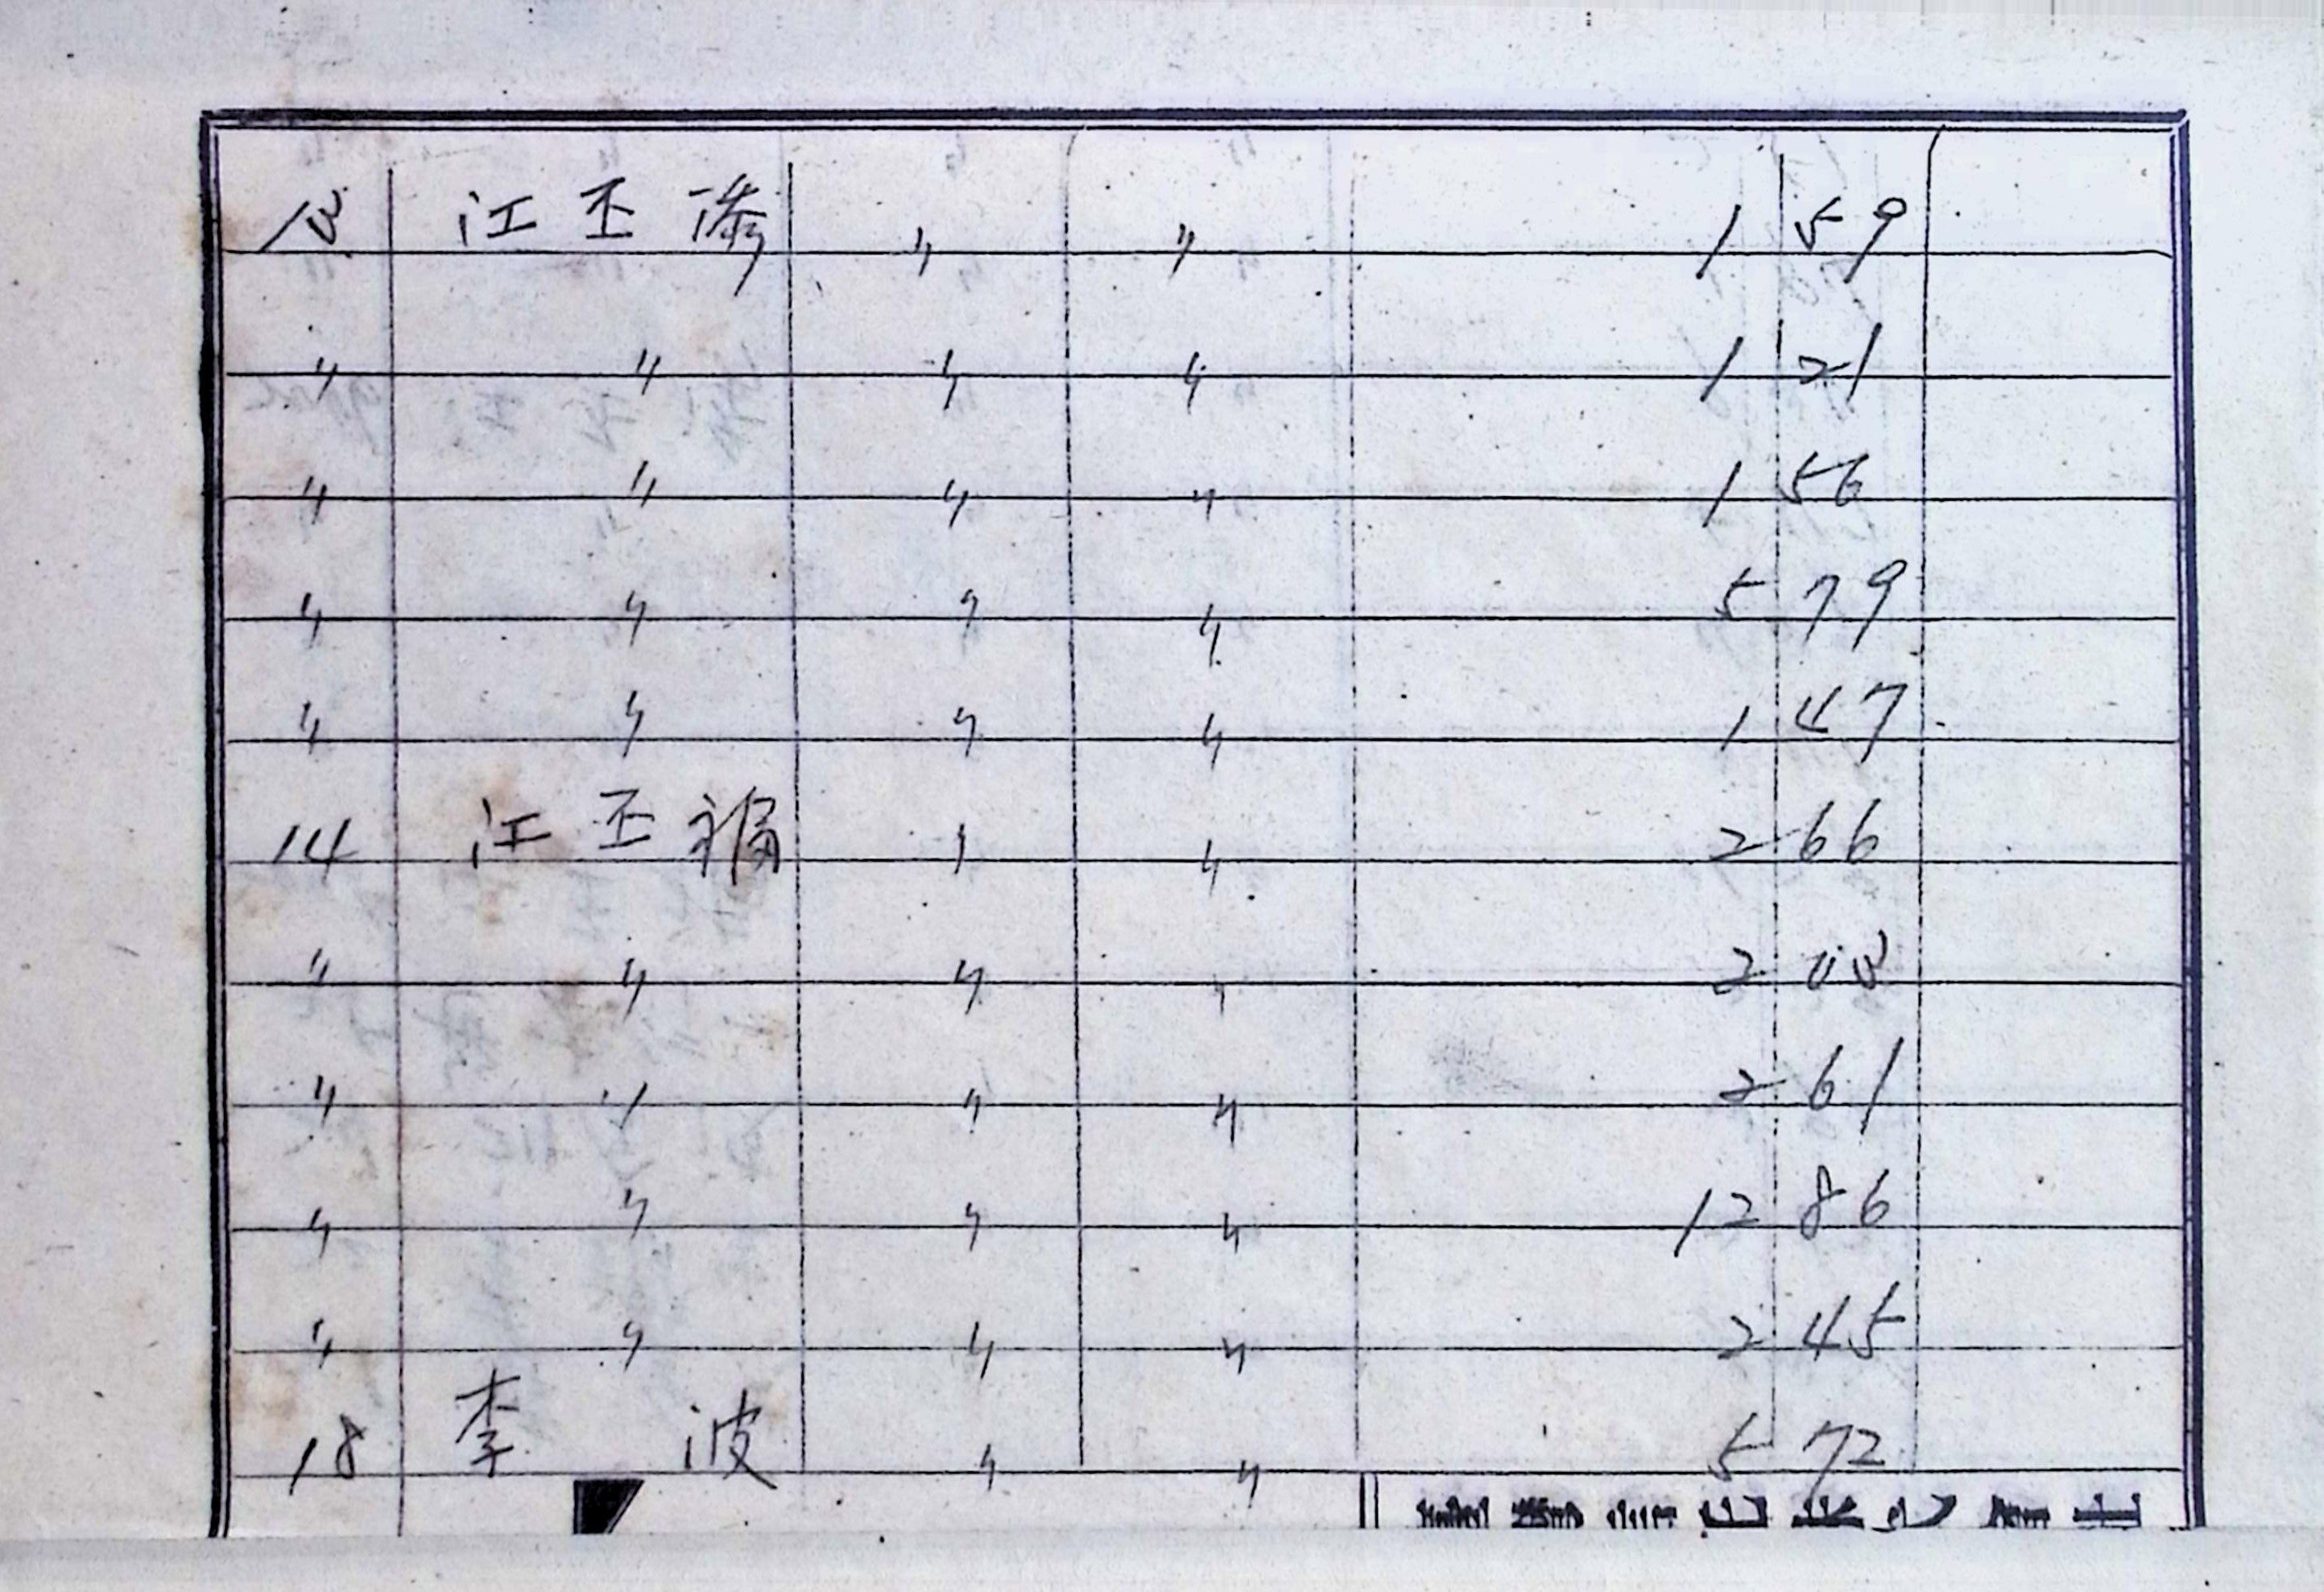 13 江丕濤 〃 〃 1 59
〃 〃 〃 〃 1 21
〃 〃 〃 〃 1 56
〃 〃 〃 〃 5 79
〃 〃 〃 〃 1 47
14 江丕福 〃 〃 2 66
〃 〃 〃 〃 2 03
〃 〃 〃 〃 2 61
〃 〃 〃 〃 12 86
〃 〃 〃 〃 2 45
18 李 波 〃 〃 5 72